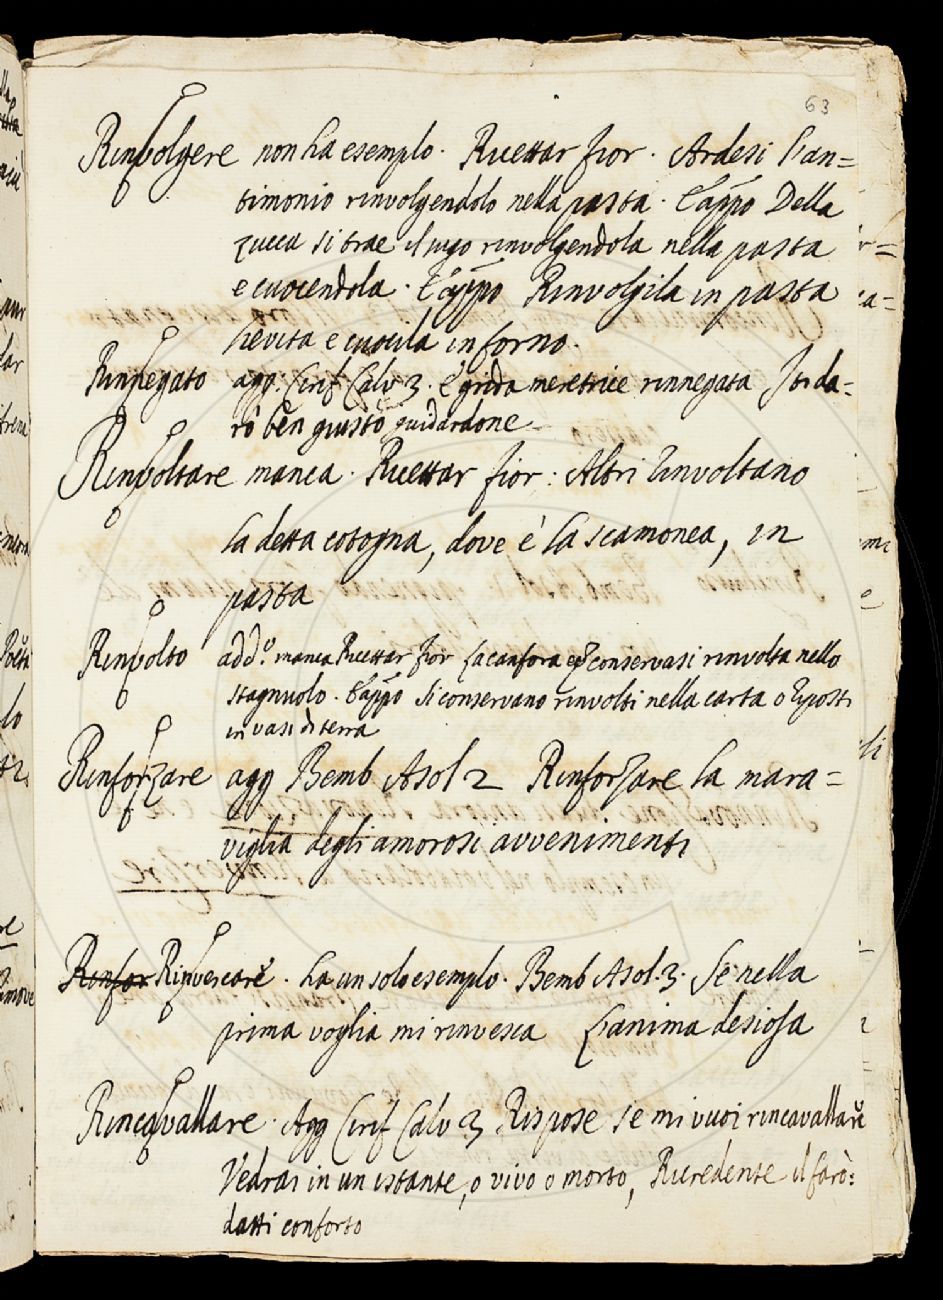 63
Rinvolgere non ha esemplo. Ricettar fior. Ardesi l'an=
timonio rinvolgendolo nella pasta. E appo Della
zucca si trae il sugo rinvolgendola nella pasta
e cuocendola. E appo Rinvolgila in pasta
lievita e cuocila in forno.
Rinnegato agg. Cirif Calv 3. E grida meretrice rinnegata Io ti da=
rò ben giusto guidardone
Rinvoltare manca. Ricettar fior: Altri rinvoltano
la detta cotogna, dove è la scamonea, in
pasta
Rinvolto add.º manca Ricettar fior La canfora conservasi rinvolta nello
stagnuolo. E appo Si conservano rinvolti nella carta o riposti
in vasi di terra
Rinforzare agg Bemb Asol 2 Rinforzare la mara=
viglia degli amorosi avvenimenti
Rinfor Rinvescare. ha un solo esemplo. Bemb Asol. 3. Se nella
prima voglia mi rinvesca L'anima desiosa
Rincavallare. Agg Cirif Calv 3 Rispose se mi vuoi rincavallare
Vedrai in un istante, o vivo o morto, Ricredente il farò:
datti conforto